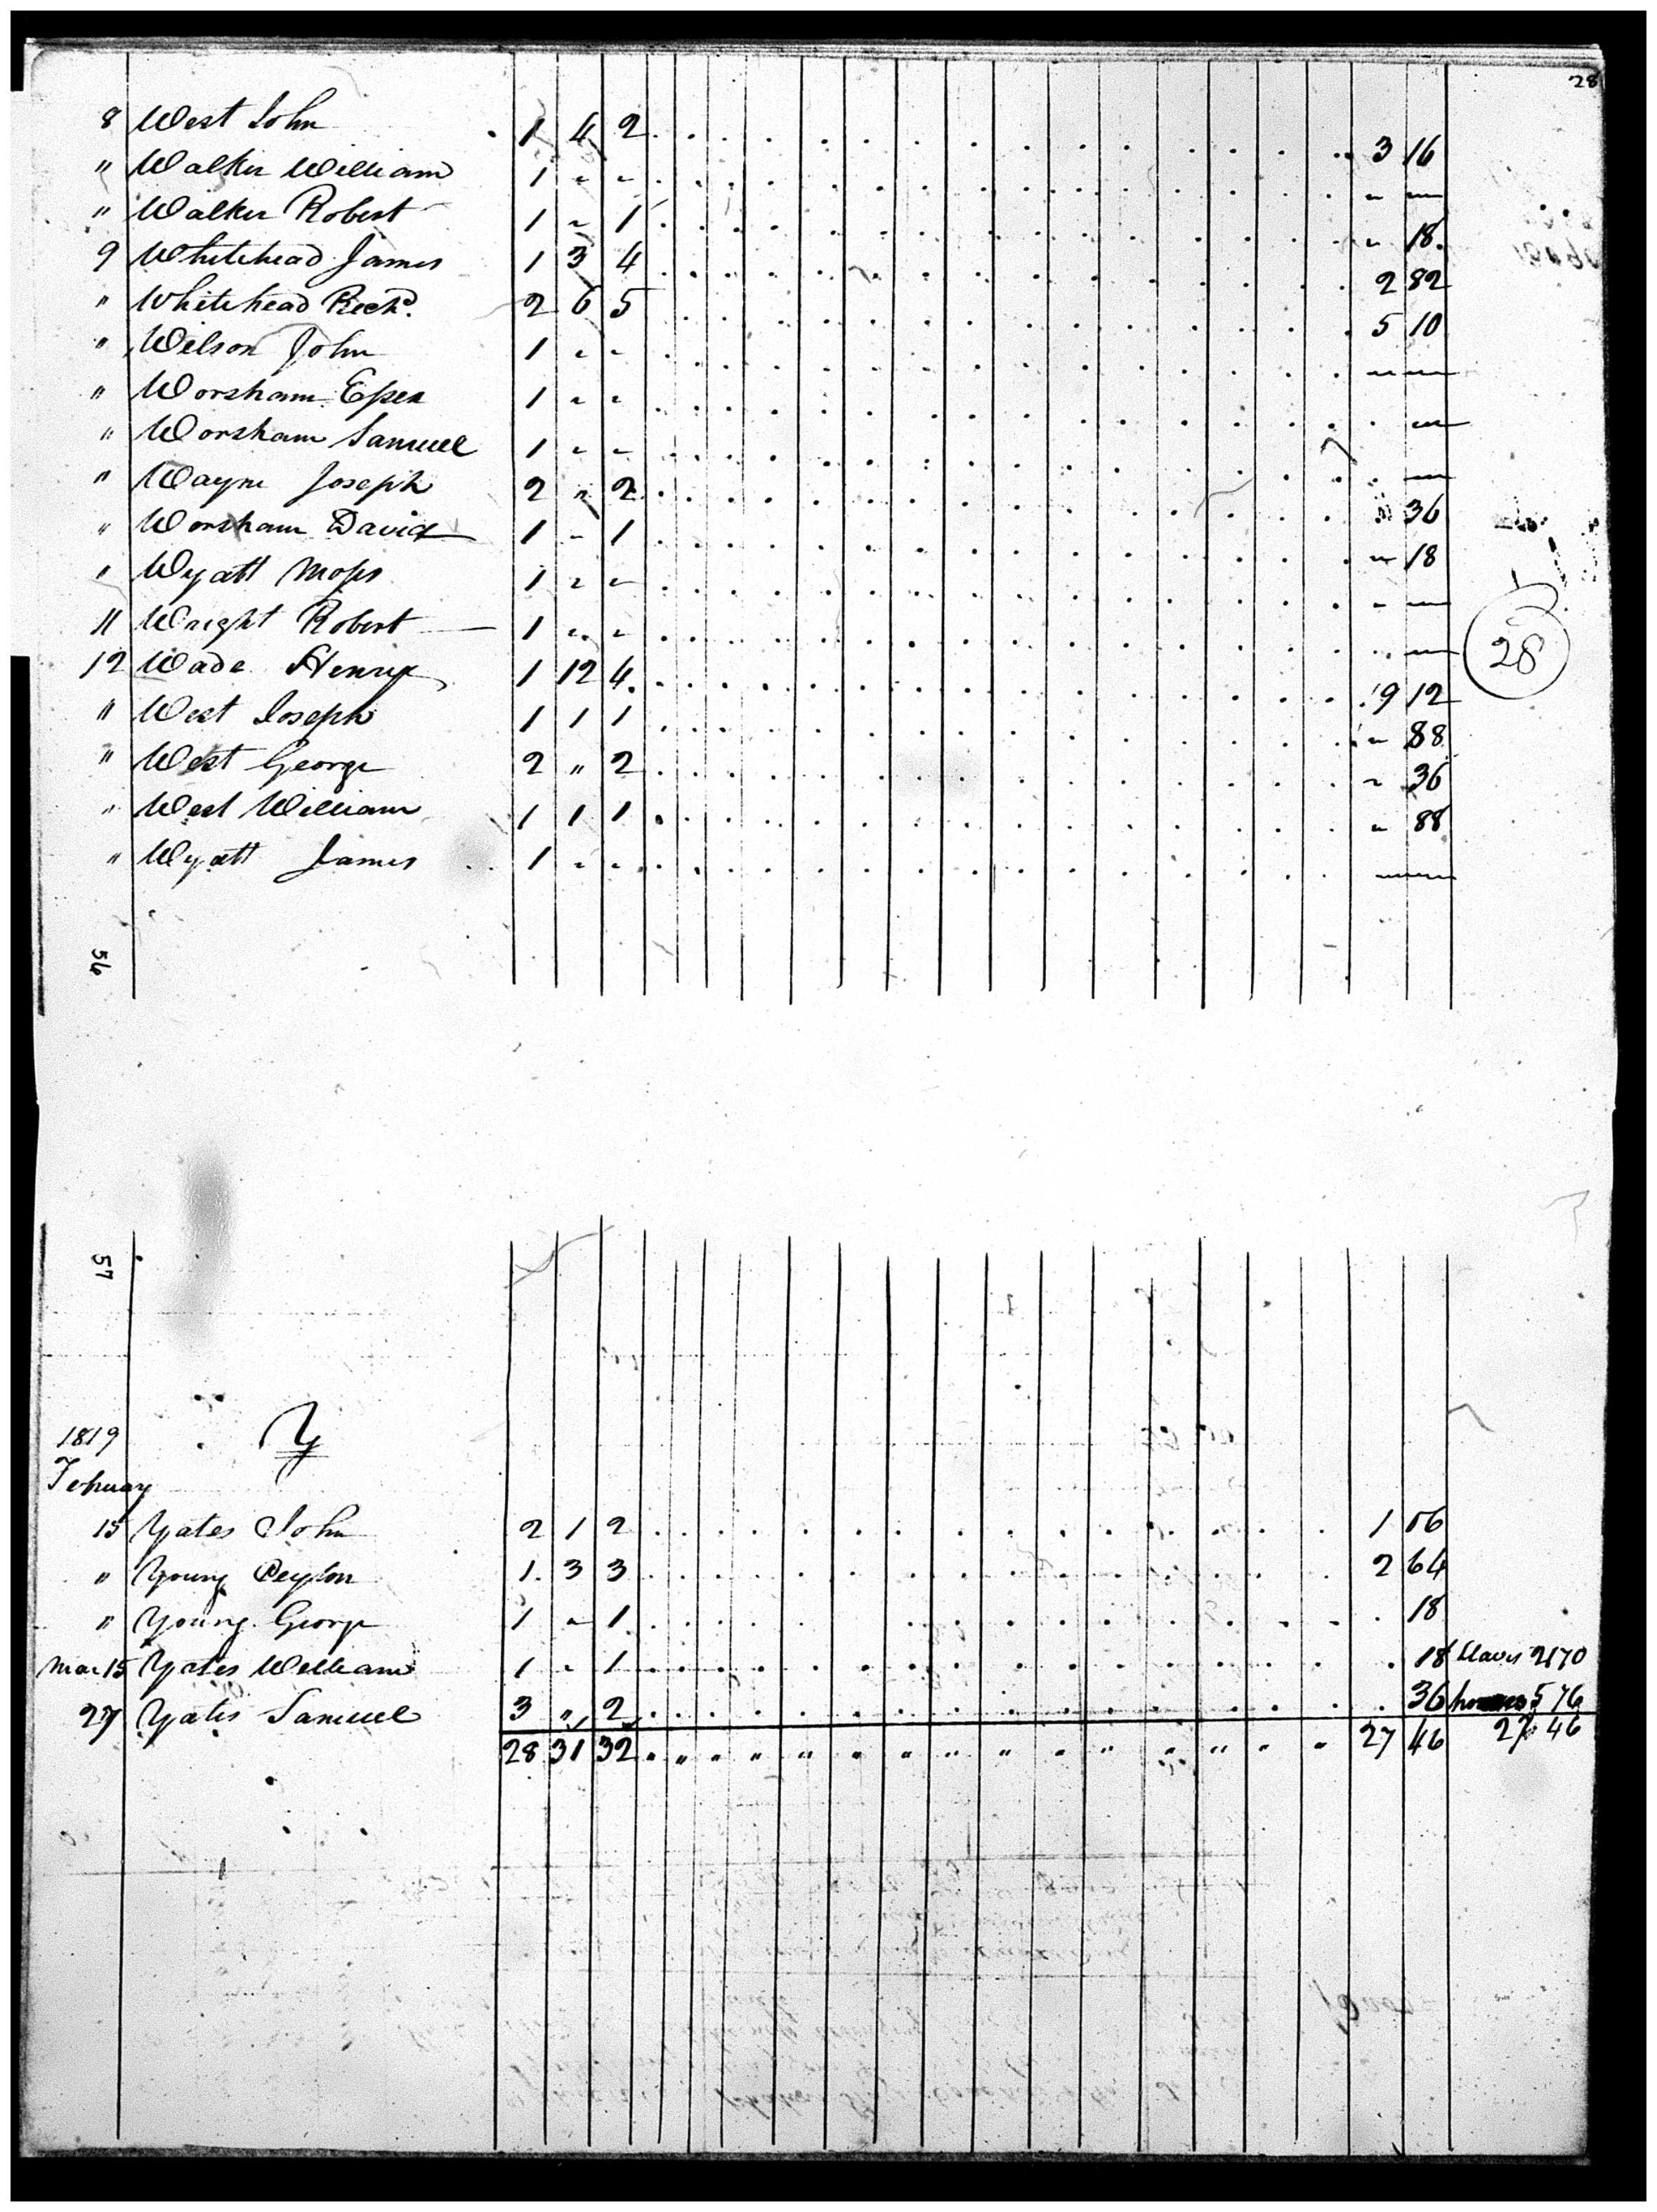 28
8 West John 1 4 2 3 16
" Walker William 1 - - - -
" Walker Robert 1 - 1 - 18
9 Whitehead James 1 3 4 2 82
" Whitehead Richd. 2 6 5 5 10
" Wilson John 1 - - - -
" Worsham Essex 1 - - -
" Worsham Samuel 1 - - -
" Wayne Joseph 2 " 2 36
" Worsham David 1 - 1 - 18
" Wyatt Moses 1 - - - -
11 Wright Robert 1 - - -
12 Wade Henry 1 12 4 9 12
" West Joseph 1 1 1 - 88
" West George 2 " 2 - 36
" West William 1 1 1 - 88
" Wyatt James 1 - - -
28
56
57
1819 Y
February
15 Yates John 2 1 2 1 06
" Young Peyton 1 3 3 2 64
" Young George 1 - 1 18
Mar 15 Yates William 1 - 1 18 Slaves 21 70
27 Yates Samuel 3 " 2 36 horses 5 76
28 31 32 " " " " " " " " " " " " " " " 27 46 27 46